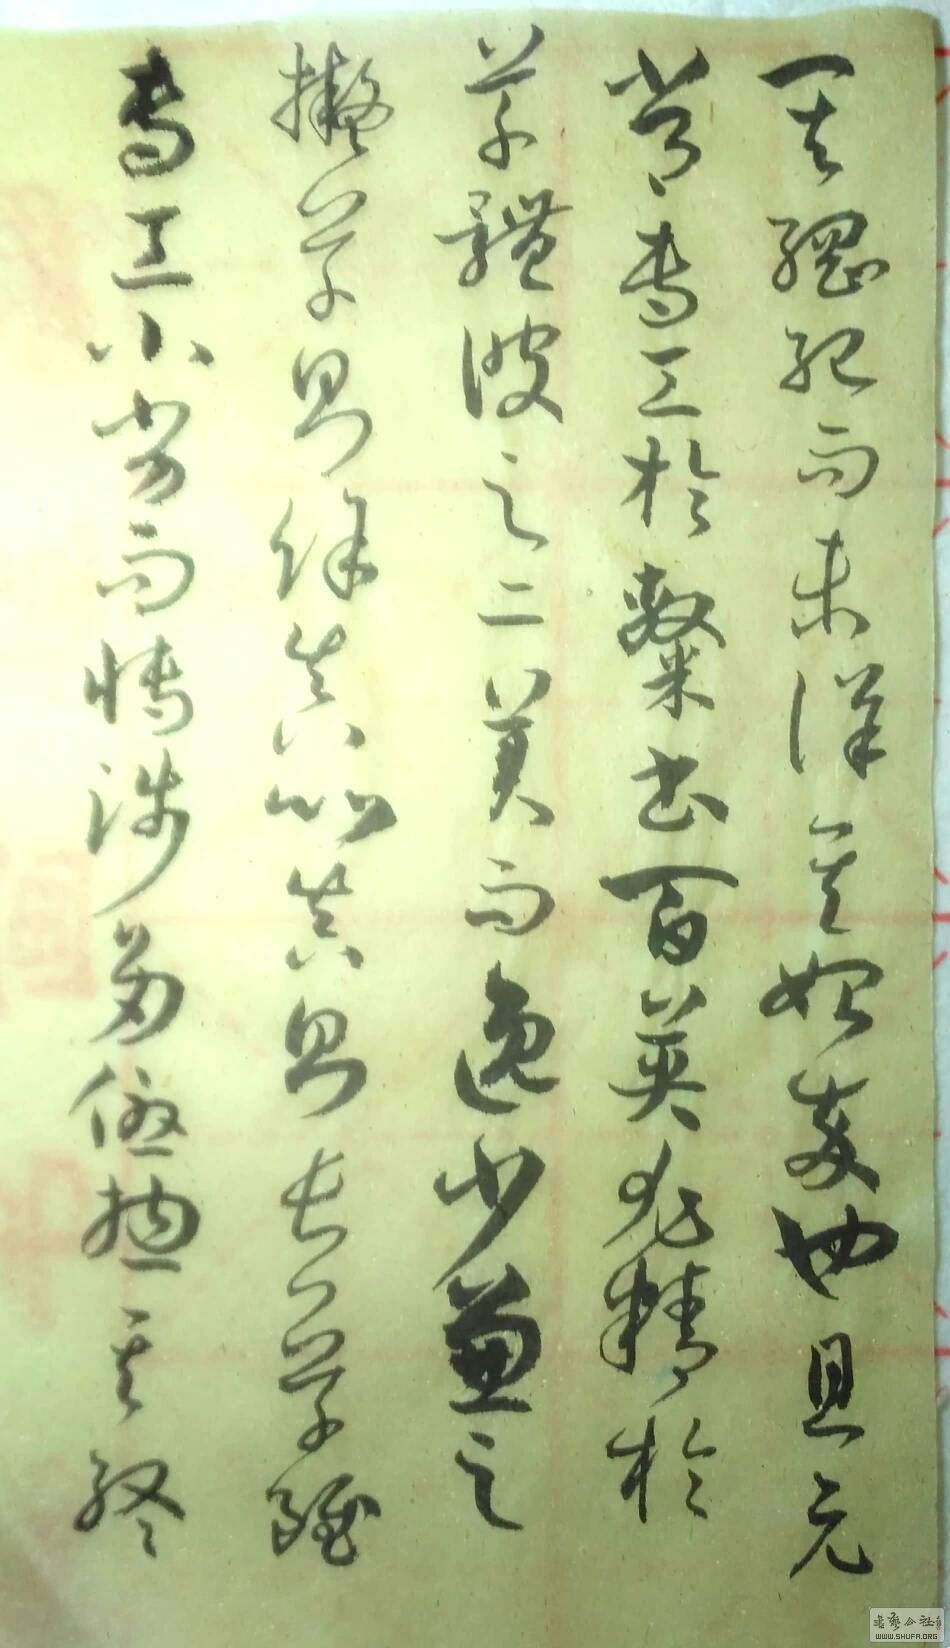 其綱紀而未詳其始卒也且元
常專工於隸書百英尤精於
草體彼之二美而逸少兼之
擬草則餘真比真則長草雖
專工小劣而博涉多優揔其終
書藝公社
WWW.SHUFA.ORG